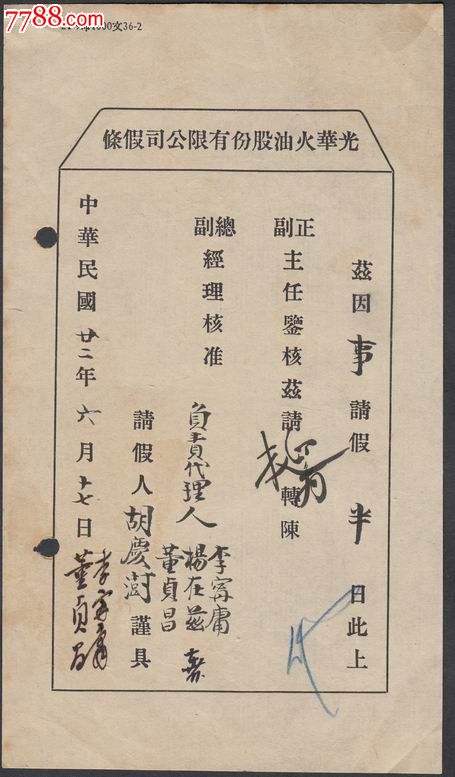 7788.com
光華火油股份有限公司假條
茲因事請假半日此上
正副主任鑒核茲請轉陳
總副經理核准
負責代理人 李甯庸 楊在茲 董貞昌
請假人胡慶澍謹具
中華民國廿二年六月十七日
李甯庸
董貞昌